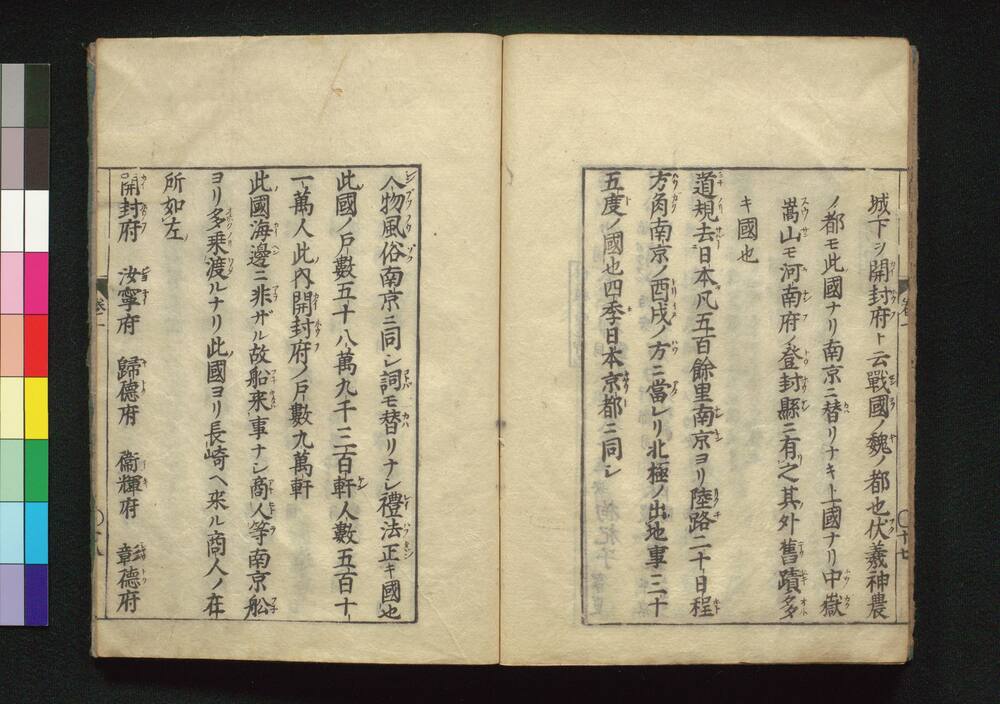 城下ヲ開封府ト云戰國ノ魏ノ都也伏羲神農
ノ都モ此國ナリ南京ニ替リナキ上國ナリ中嶽
嵩山モ河南府ノ登封縣ニ有之其外舊蹟多
キ國也
道規去日本凡五百餘里南京ヨリ陸路二十日程
方角南京ノ西戌ノ方ニ當レリ北極ノ出地事三十
五度ノ國也四季日本京都ニ同シ
卷一
〇十七
人物風俗南京ニ同シ詞モ替リナシ禮法正キ國也
此國ノ戸數五十八萬九千三百軒人數五百十
一萬人此內開封府ノ戸數九萬軒
此國海邊ニ非ザル故船来事ナシ商人等南京船
ヨリ多乘渡ルナリ此國ヨリ長崎ヘ来ル商人ノ在
所如左
開封府 汝寧府 歸德府 衞輝府 彰德府
卷一
〇十八